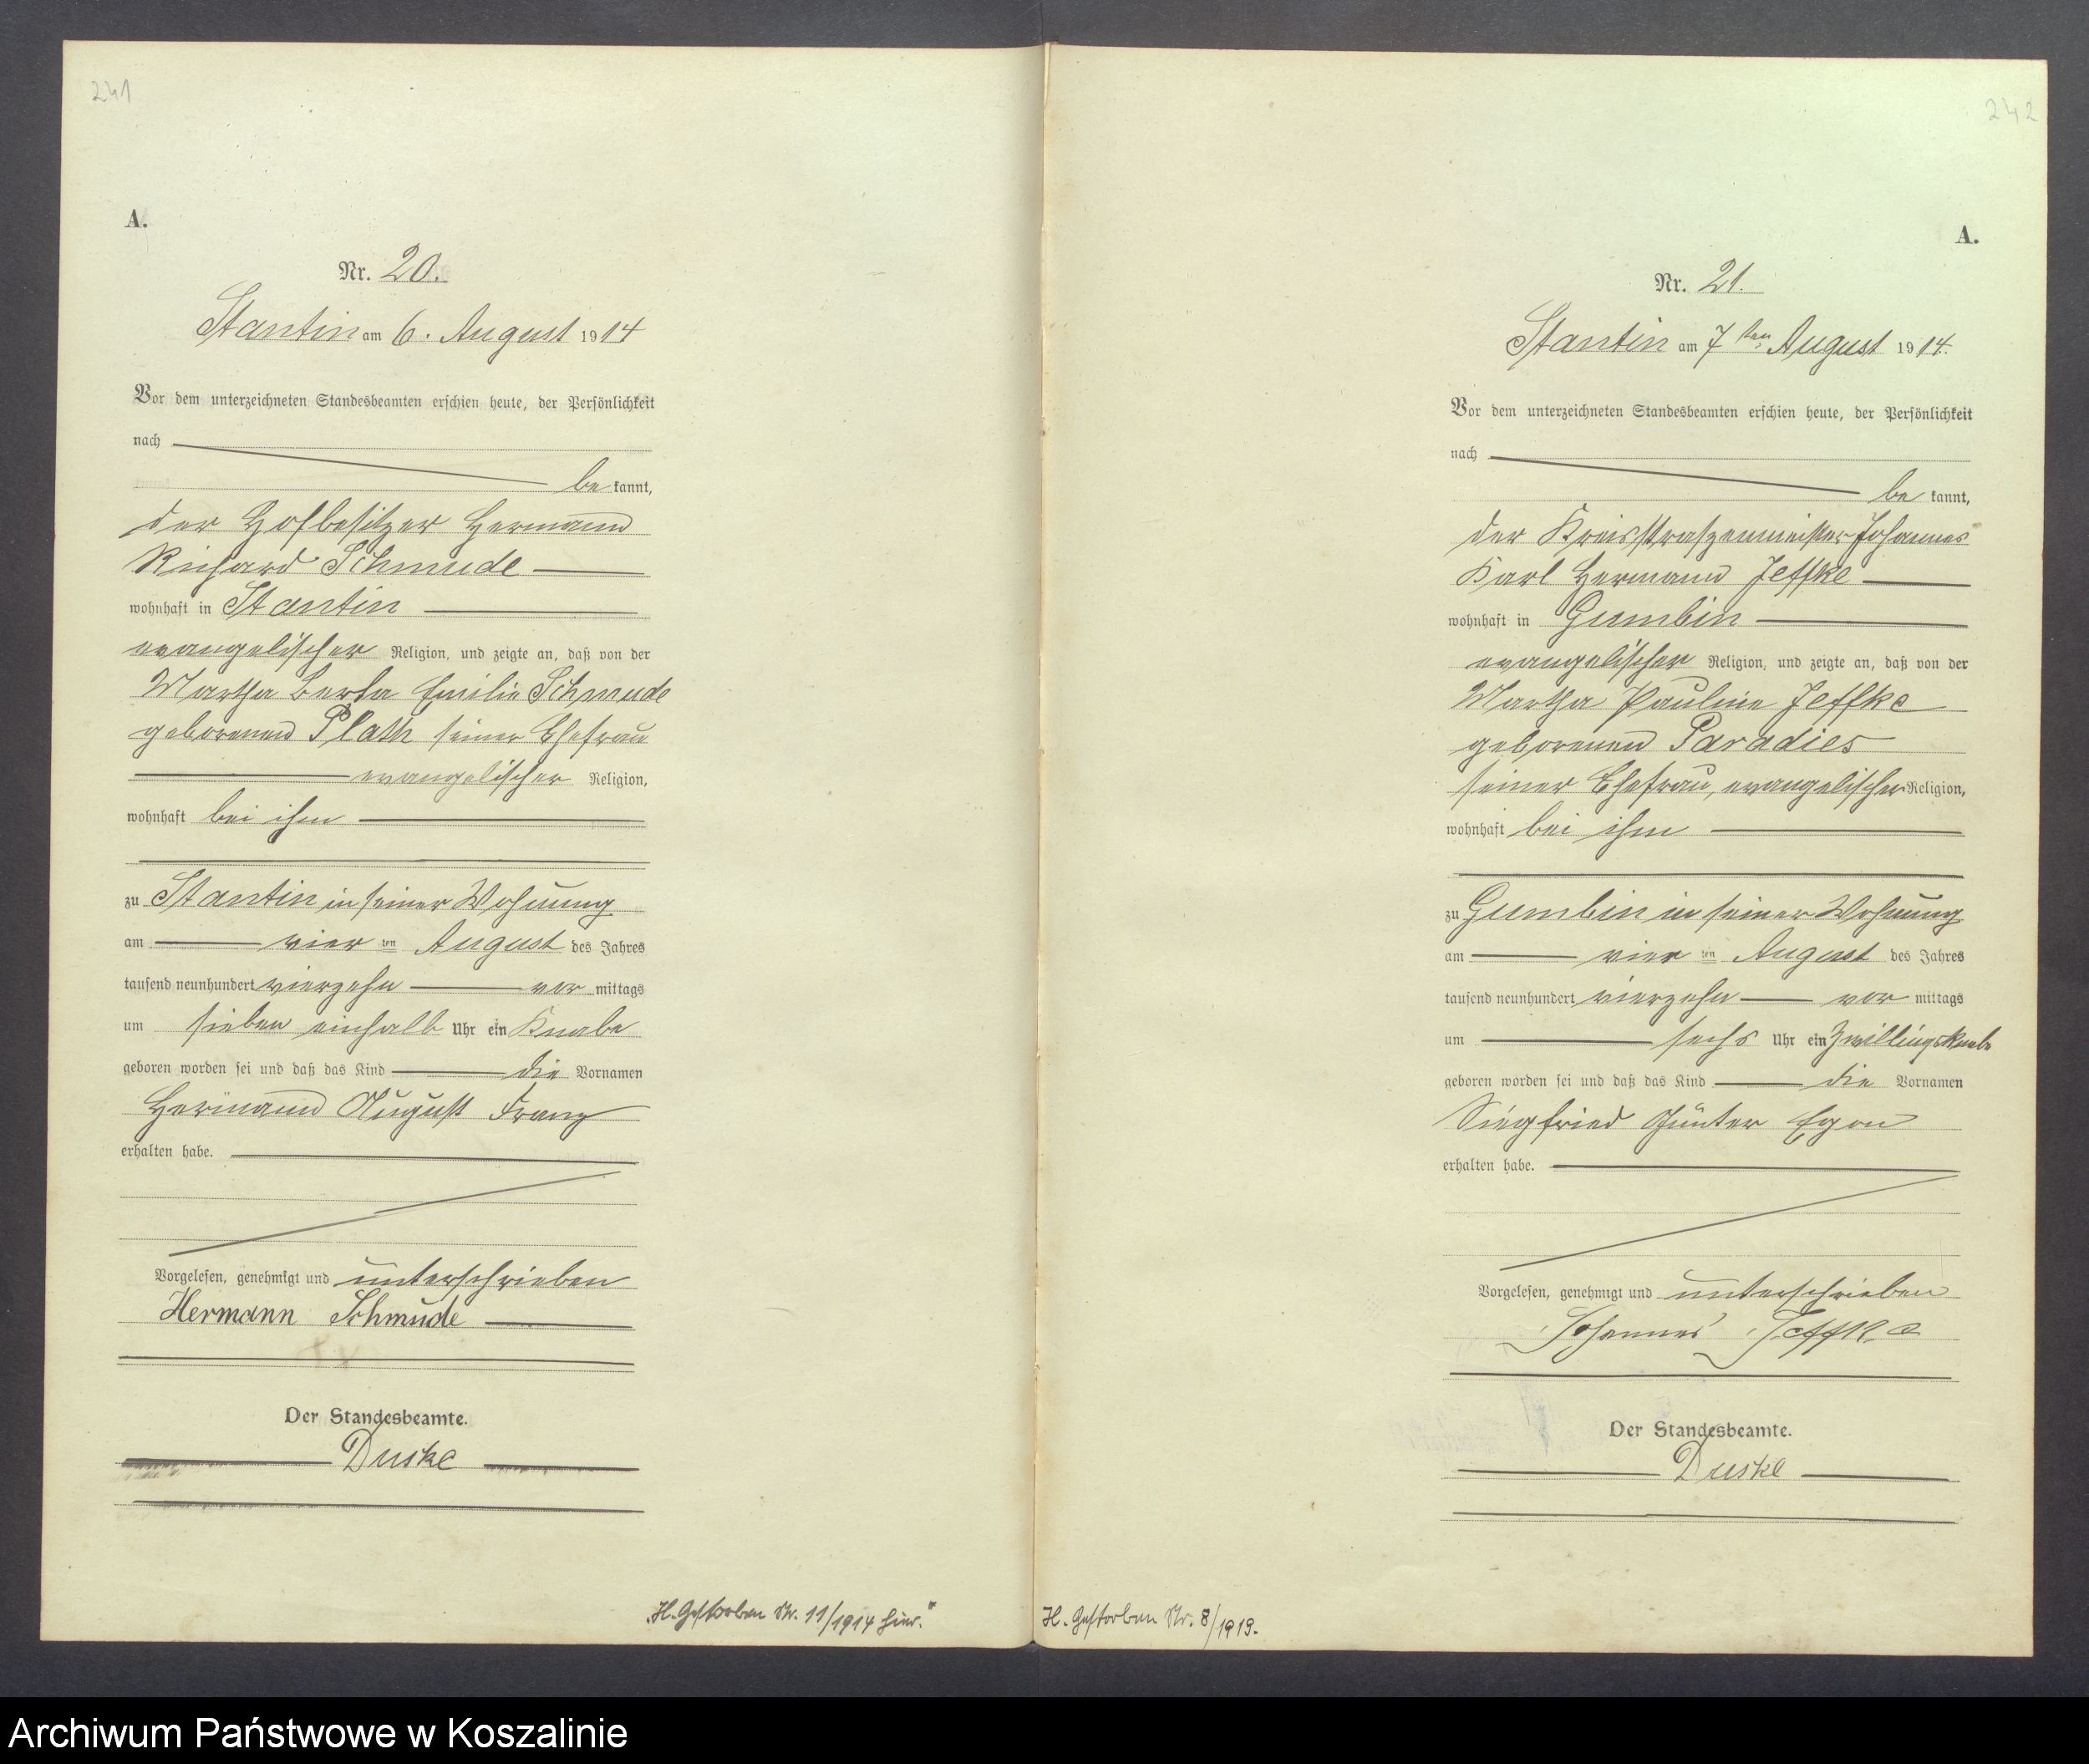 241
A.
Nr. 20.
Stantin am 6. August 1914
Vor dem unterzeichneten Standesbeamten erschien heute, der Persönlichkeit
nach
be kannt,
der Hofbesitzer Hermann
Richard Schmude
wohnhaft in Stantin
evangelischer Religion, und zeigte an, daß von der
Martha Berta Emilie Schmude
geborenen Plath seiner Ehefrau
evangelischer Religion,
wohnhaft bei ihm
zu Stantin in seiner Wohnung
am vier ten August des Jahres
tausend neunhundert vierzehn vor mittags
um sieben einhalb Uhr ein Knabe
geboren worden sei und daß das Kind die Vornamen
Hermann August Franz
erhalten habe.
Vorgelesen, genehmigt und unterschrieben
Hermann Schmude
Der Standesbeamte.
Duske
H. Gestorben Nr. 11/1914 hier.
242
A.
Nr. 21.
Stantin am 7ten August 1914.
Vor dem unterzeichneten Standesbeamten erschien heute, der Persönlichkeit
nach
be kannt,
der Kreisstraßenmeister Johannes
Karl Hermann Jeffke
wohnhaft in Gumbin
evangelischer Religion, und zeigte an, daß von der
Martha Pauline Jeffke
geborenen Paradies
seiner Ehefrau, evangelischer Religion,
wohnhaft bei ihm
zu Gumbin in seiner Wohnung
am vier ten August des Jahres
tausend neunhundert vierzehn vor mittags
um sechs Uhr ein Zwillingsknabe
geboren worden sei und daß das Kind die Vornamen
Siegfried Günter Egon
erhalten habe.
Vorgelesen, genehmigt und unterschrieben
Johannes Jeffke
Der Standesbeamte.
Duske
H. Gestorben Nr. 8/1919.
Archiwum Państwowe w Koszalinie